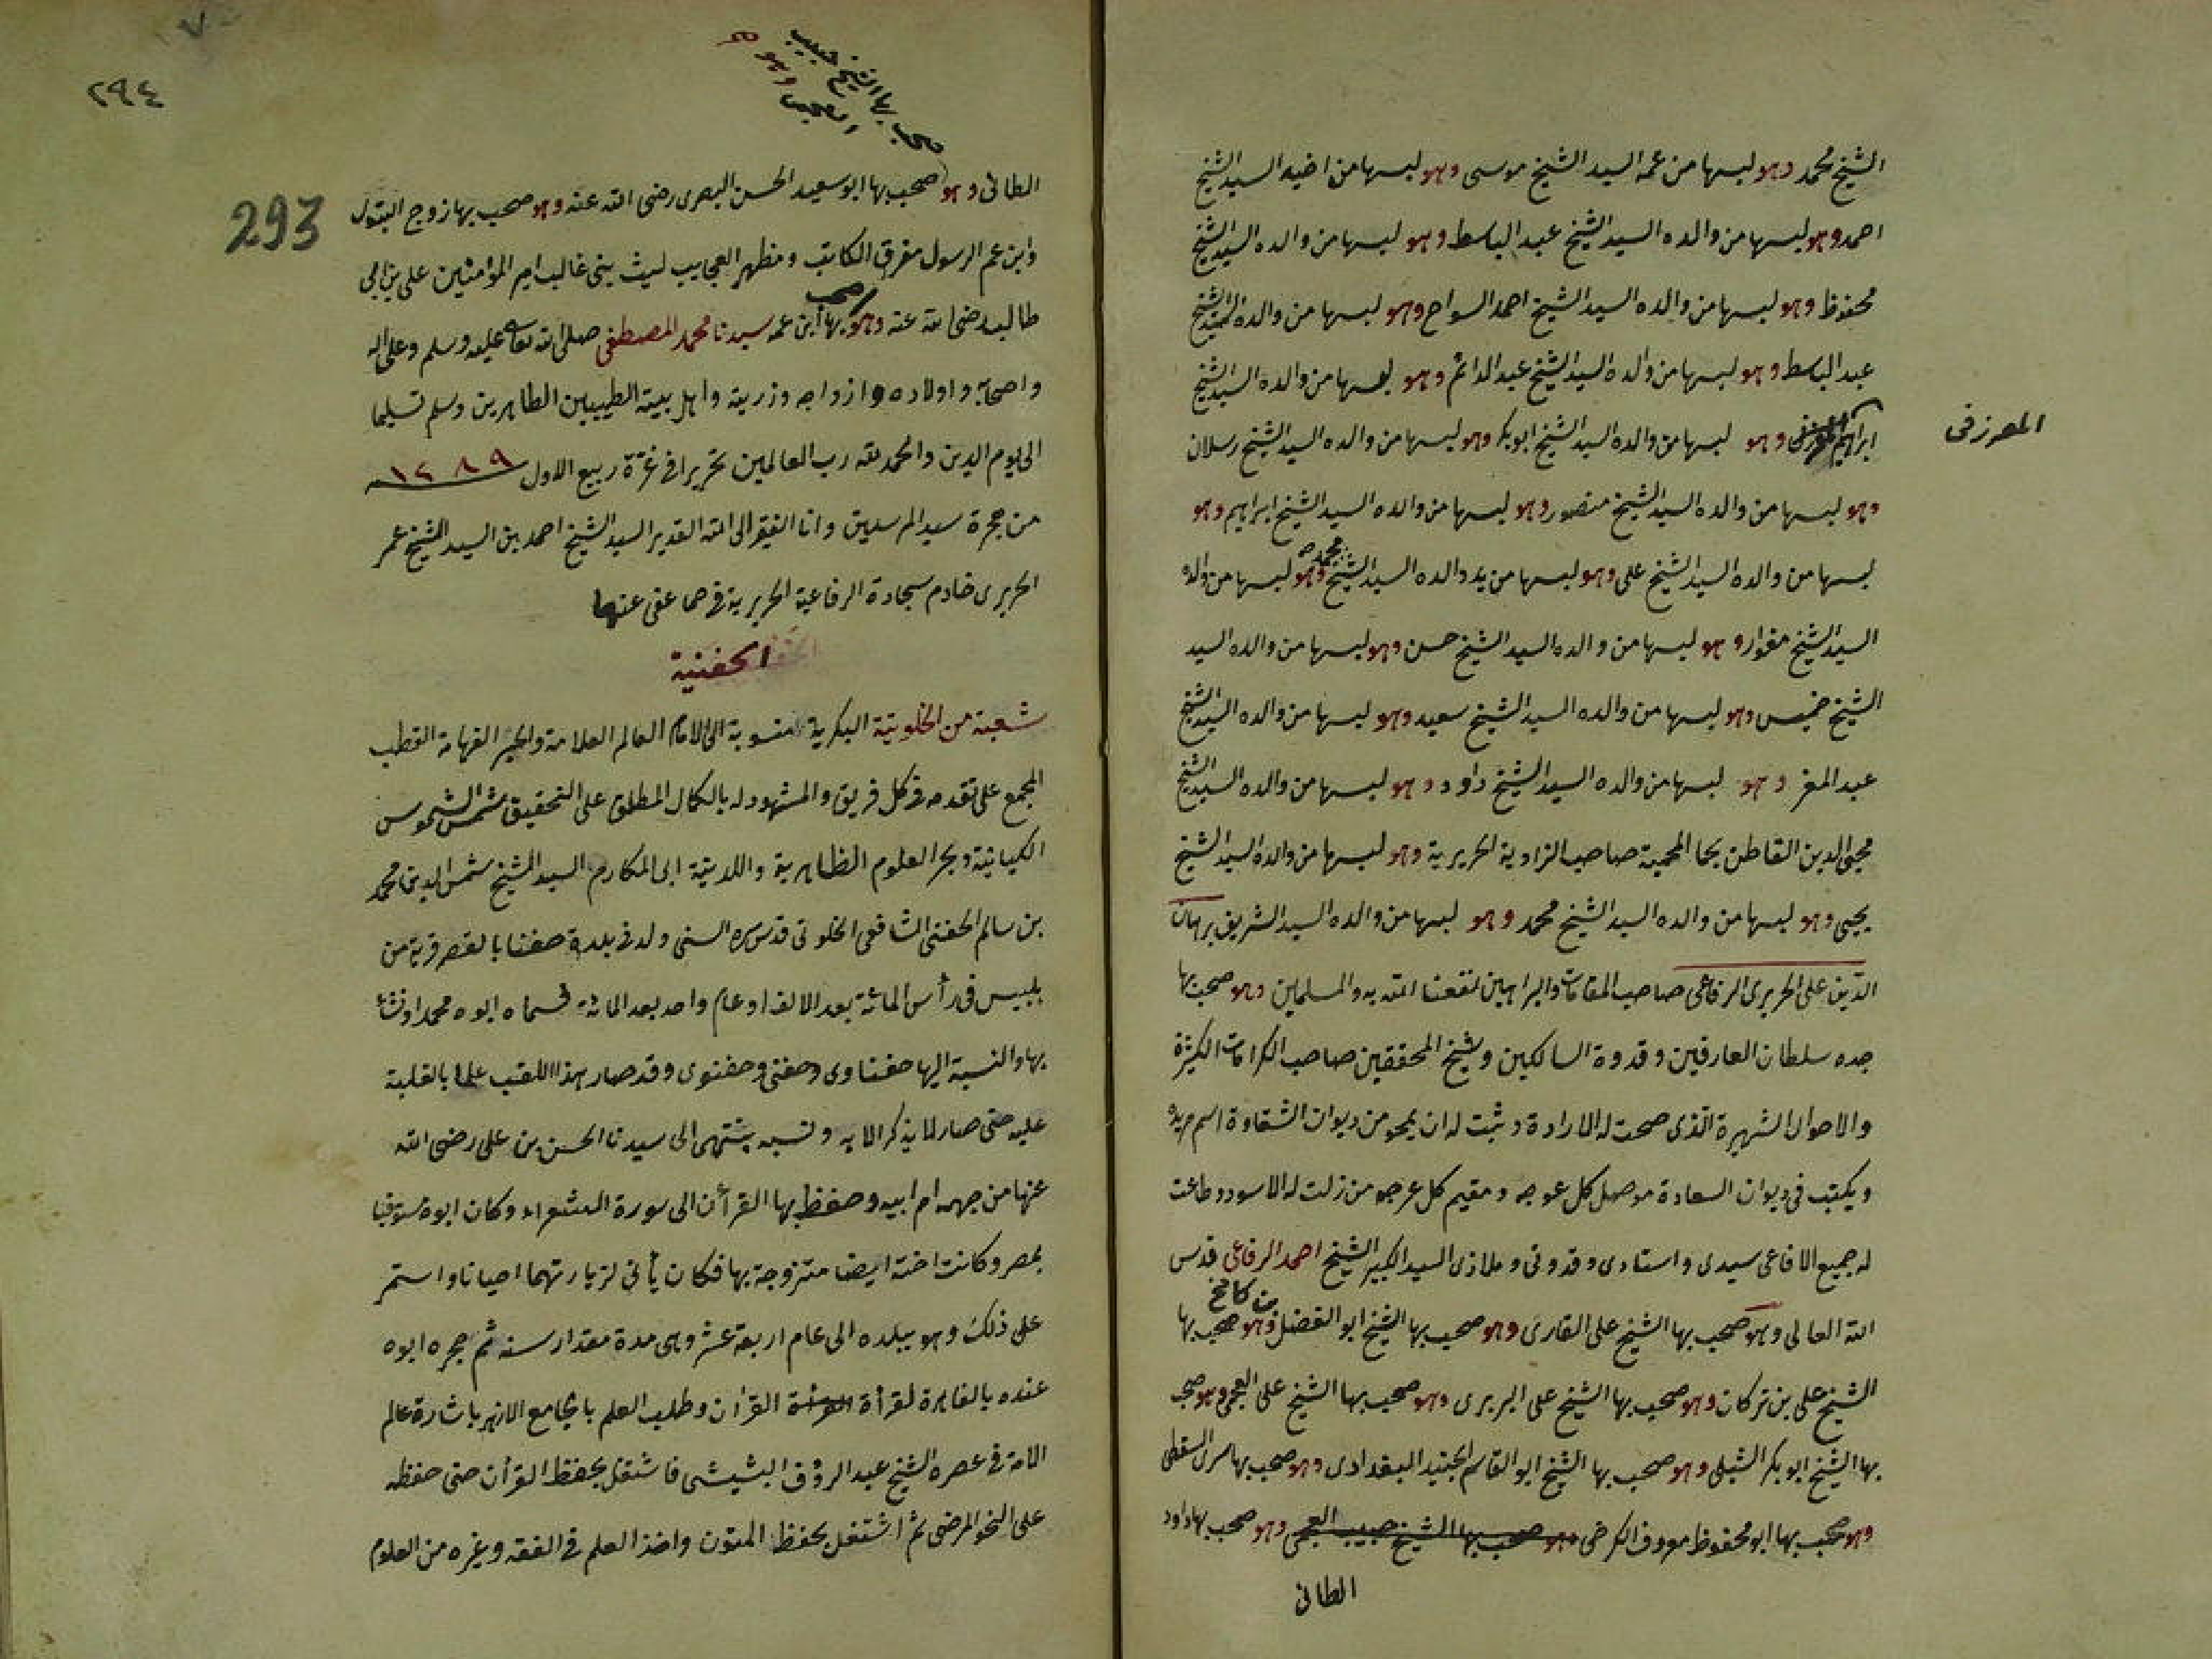 الشيخ محمد وهو لبسها من عمه السيد الشيخ موسى وهو لبسها من اخيه السيد الشيخ
احمد وهو لبسها من والده السيد الشيخ عبد الباسط وهو لبسها من والده السيد الشيخ
محفوظ وهو لبسها من والده السيد الشيخ احمد السواح وهو لبسها من والده السيد الشيخ
عبد الباسط وهو لبسها من والده السيد الشيخ عبد الدائم وهو لبسها من والده السيد الشيخ
ابراهيم وهو لبسها من والده السيد الشيخ ابو بكر وهو لبسها من والده السيد الشيخ رسلان
المعرزفى
وهو لبسها من والده السيد الشيخ منصور وهو لبسها من والده السيد الشيخ ابراهيم وهو
لبسها من والده السيد الشيخ على وهو لبسها من يد والده السيد الشيخ محمد وهو لبسها من والده
السيد الشيخ مغوار وهو لبسها من والده السيد الشيخ حسن وهو لبسها من والده السيد
الشيخ خميس وهو لبسها من والده السيد الشيخ سعيد وهو لبسها من والده السيد الشيخ
عبد المعز وهو لبسها من والده السيد الشيخ داود وهو لبسها من والده السيد الشيخ
محيى الدين القاطن بحما المحمية صاحب الزاوية الحريرية وهو لبسها من والده السيد الشيخ
يحيى وهو لبسها من والده السيد الشيخ محمد وهو لبسها من والده السيد الشريف برهان
الدين على الحريرى الرفاعى صاحب المقامات والبراهين نفعنا الله به والمسلمين وهو صحب بها
جده سلطان العارفين وقدوة السالكين وشيخ المحققين صاحب الكرامات الكثيرة
والاحوال الشهيرة الذى صحت له الارادة وثبت له ان يمحو من ديوان الشقاوة اسم مريده
ويكتب فى ديوان السعادة موصل كل عوجه ومقيم كل عرجو من زلت له الاسود وطاعت
له جميع الافاعى سيدى واستادى وقدوتى وملاذى السيد الكبير الشيخ احمد الرفاعى قدس
الله العالى وهو صحب بها الشيخ على القارى وهو صحب بها الشيخ ابو الفضل بن كامخ وهو صحب بها
الشيخ على بن تركان وهو صحب بها الشيخ على البربرى وهو صحب بها الشيخ على العجمى وهو صحب
بها الشيخ ابو بكر الشبلى وهو صحب بها الشيخ ابو القاسم الجنيد البغدادى وهو صحب بها سرى السقطى
وهو صحب بها ابو محفوظ معروف الكرخى وهو صحب بها الشيخ حبيب العجمى وهو صحب بها داود
الطائى
٢٩٤
293
صحب بها الشيخ حبيب
العجمى وهو
الطائى وهو صحب بها ابو سعيد الحسن البصرى رضى الله عنه وهو صحب بها زوج البتول
وابن عم الرسول مفرق الكتائب ومظهر العجايب ليث بنى غالب امير المؤامنين على بن ابى
طالب رضى الله عنه وهو صحب بها ابن عمه سيدنا محمد المصطفى صلى الله تعالى عليه وسلم وعلى اله
واصحابه واولاده وازواجه وزريته واهل بيته الطيبين الطاهرين وسلم تسليما
الى يوم الدين والحمد لله رب العالمين تحريرا فى غرّة ربيع الاول ١٢٨٩ سنه
من هجرة سيد المرسلين وانا الفقير الى الله القدير السيد الشيخ احمد بن السيد الشيخ عمر
الحريرى خادم سجادة الرفاعية الحريرية فى حما عفى عنهما
الحفنية
شعبة من الخلوتية البكرية منسوبة الى الامام العالم العلامة والحبر الفهامة القطب
المجمع على تقدمه فى كل فريق والمشهود له بالكمال المطلق على التحقيق شمس الشموس
الكيانية وبحر العلوم الظاهرية واللدنية ابى المكارم السيد الشيخ شمس الدين محمد
بن سالم الحفنى الشافعى الخلوتى قدس سره السنى ولد فى بلدة حفنا بالقصر قرية من
بلبيس فى رأس المائة بعد الالف او عام واحد بعد المائة فسماه ابوه محمدا ونشأ
بها والنسبة اليها حفناوى وحفنى وحفنوى وقد صار بهذا اللقب علما بالغلبة
عليه حتى صار لما يذكر الا به ونسبه ينتهى الى سيدنا الحسن بن على رضى الله
عنهما من جهه ام ابيه وحفظ بها القرأن الى سورة الشعراء وكان ابوه مستوفيا
بمصر وكانت اخته ايضا متزوجة بها فكان يأتى لزيارتهما احيانا واستمر
على ذلك وهو ببلده الى عام اربعة عشر وهى مدة مقدار سنه ثم حجره ابوه
عنده بالقاهرة لقرأة القرأن وطلب العلم بالجامع الازهر باشارة عالم
الامة فى عصره الشيخ عبد الرؤف البشبشى فاشتغل بحفظ القرأن حتى حفظه
على النحو المرضى ثم اشتغل بحفظ المتون واخذ العلم فى الفقه وغيره من العلوم